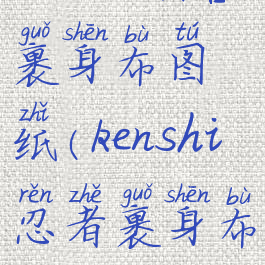 guǒ shēn bù tú
裹身布图
zhǐ
纸(kenshi
rěn zhě guǒ shēn bù
忍者裹身布